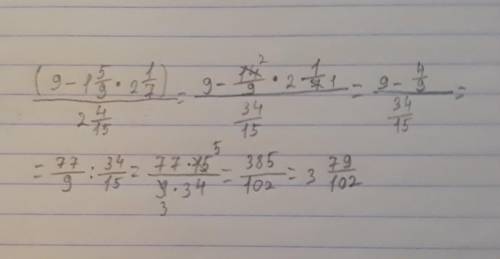 (9 - 1 5/9 · 2 1/7) / (2 4/15) = (9 - 14²/9 · 2 1/7 1) / (34/15) = (9 - 4/9) / (34/15) =
= 77/9 : 34/15 = (77 · 15 5) / (9 3 · 34) = 385/102 = 3 79/102